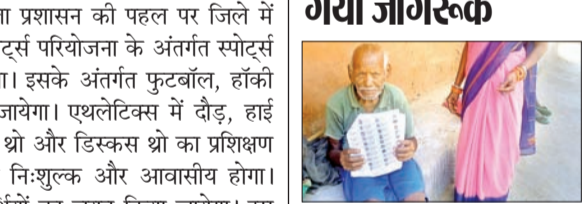 प्रशासन की पहल पर जिले में
परियोजना के अंतर्गत स्पोर्ट्स
इसके अंतर्गत फुटबॉल, हॉकी
जायेगा। एथलेटिक्स में दौड़, हाई
थ्रो और डिस्कस थ्रो का प्रशिक्षण
निःशुल्क और आवासीय होगा।
गया जागरूक